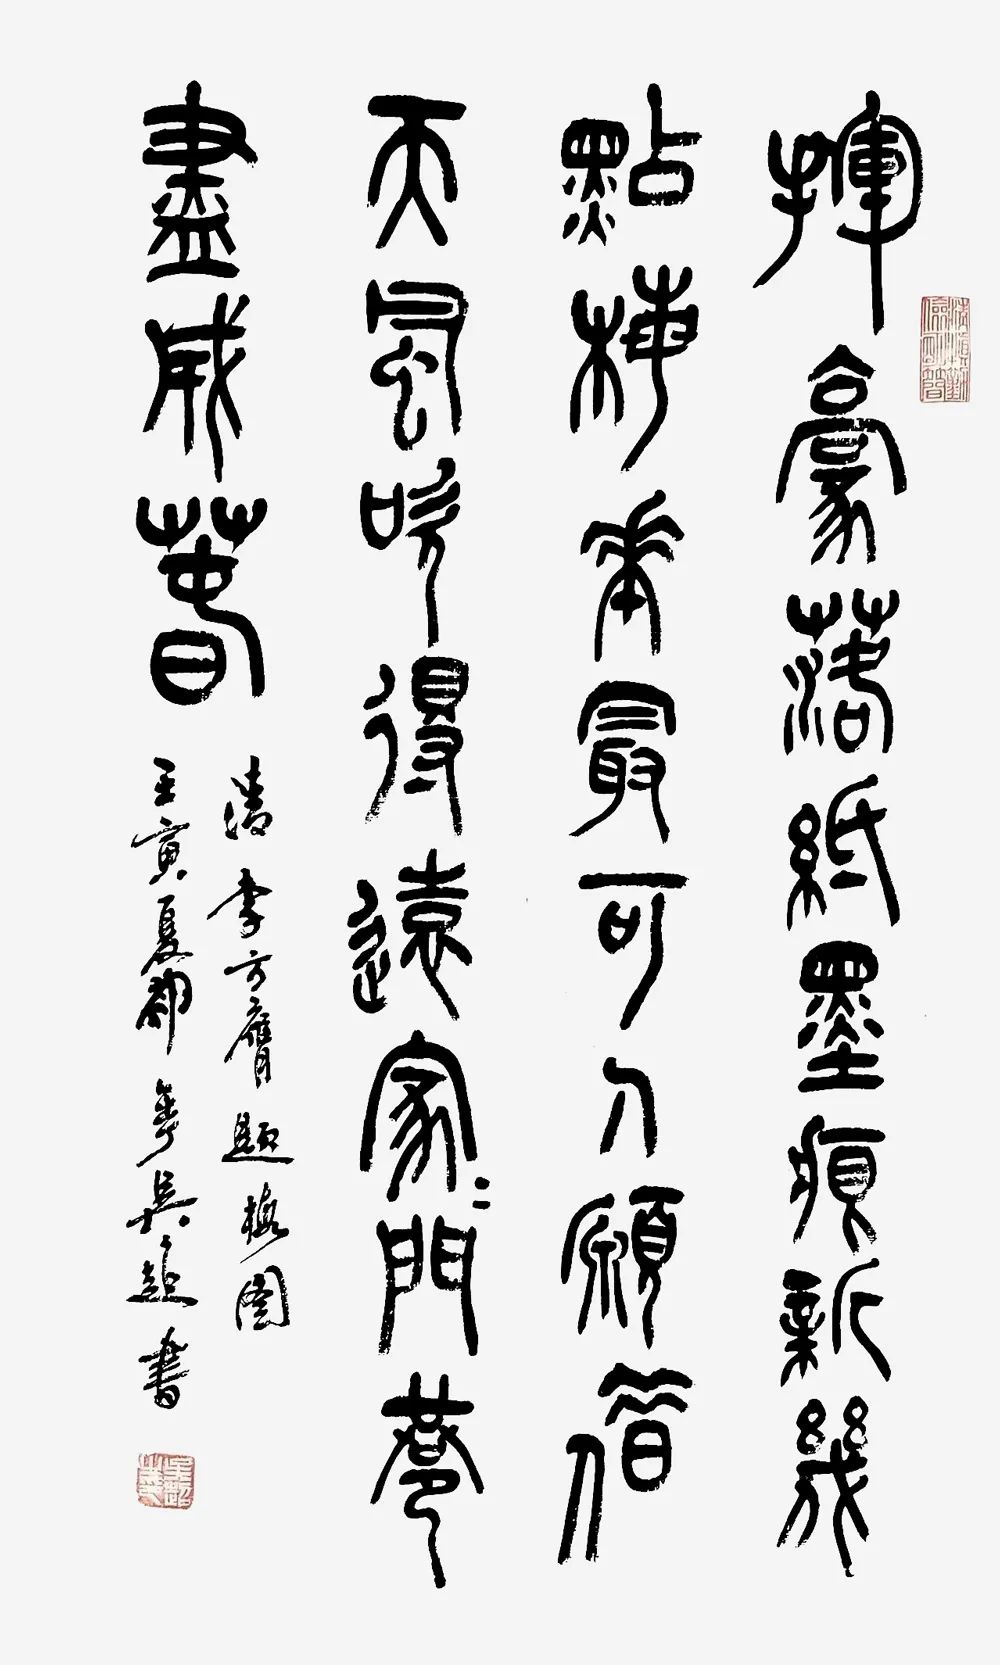 揮豪落紙墨痕新幾
點梅華最可人願借
天風吹得遠家〻門巷
盡成萅
清李方膺題梅圖
壬寅夏鄰粤吴趄書